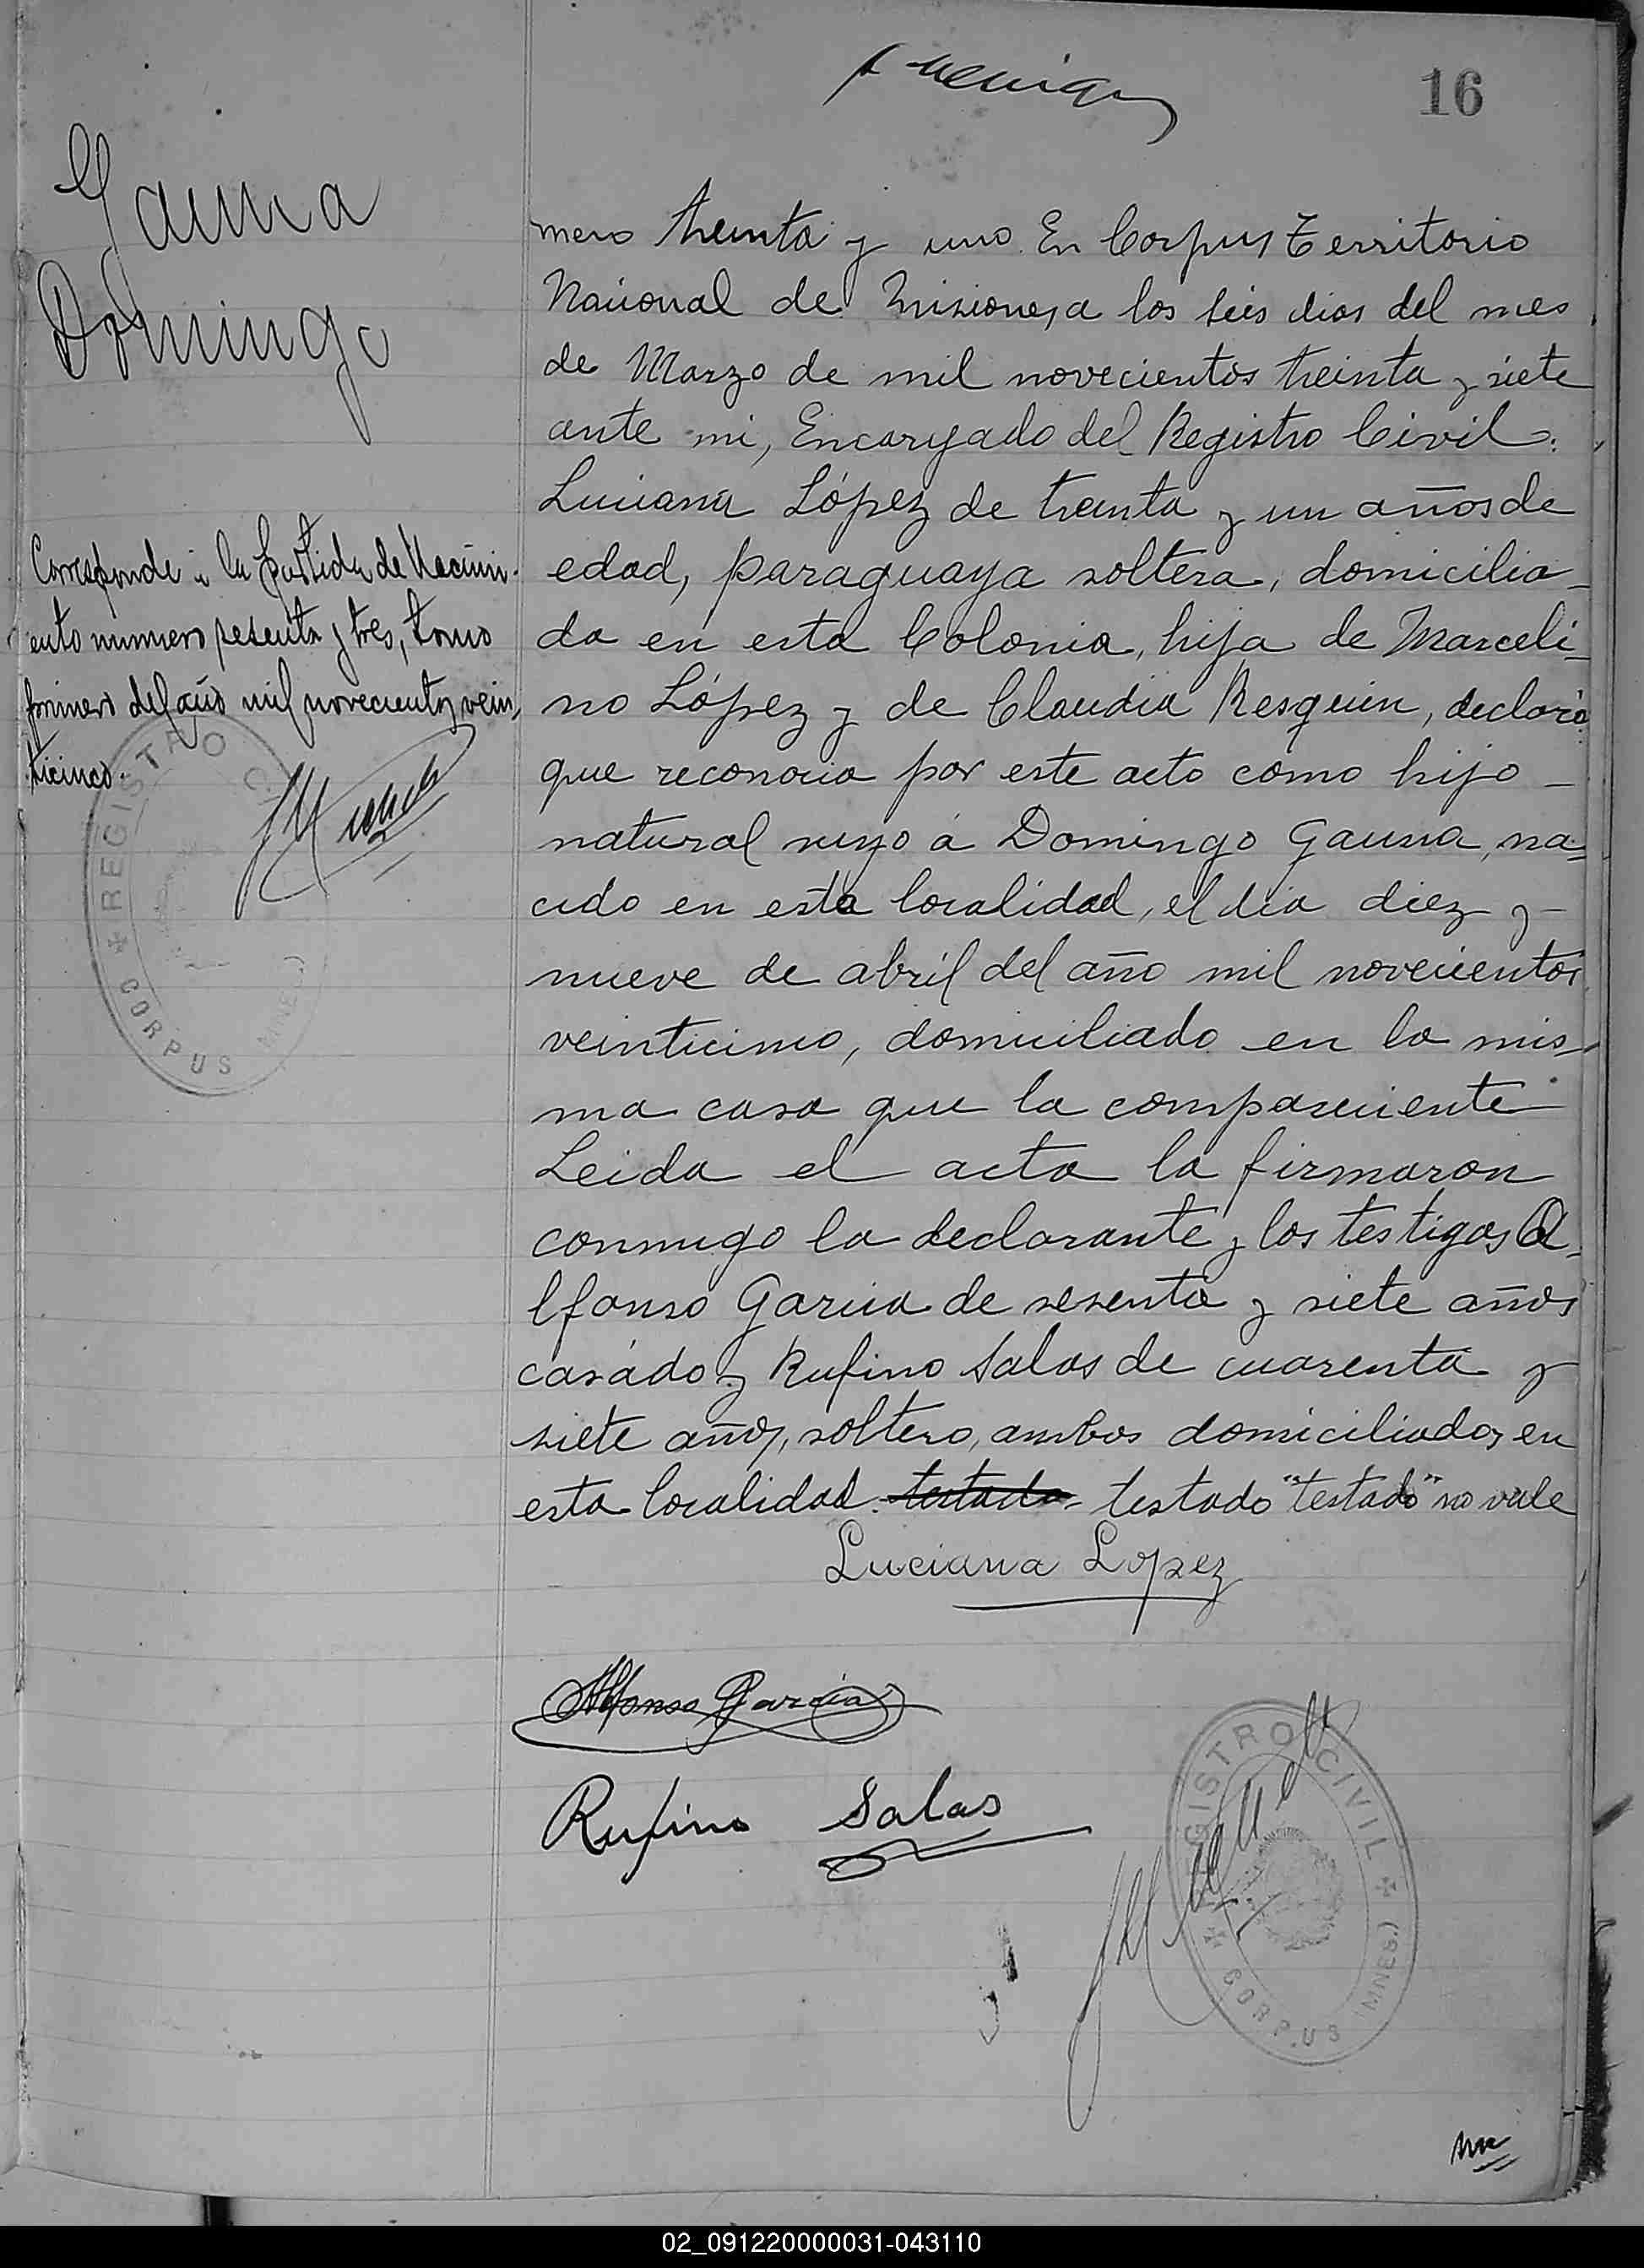 16
Gauna
Domingo
Corresponde a la partida de Nacimi-
ento numero sesenta y tres, tomo
primero del año mil novecientos vein,
ticinco.
REGISTRO CI
CORPUS (MNES.)
mero treinta y uno. En Corpus Territorio
Nacional de Misiones, a los seis dias del mes
de Marzo de mil novecientos treinta y siete
ante mi, Encargado del Registro Civil.
Luciana López de treinta y un años de
edad, paraguaya soltera, domicilia-
da en esta Colonia, hija de Marceli-
no López y de Claudia Resquin, declaró
que reconocia por este acto como hijo -
natural suyo á Domingo Gauna, na-
cido en esta localidad, el dia diez y -
nueve de abril del año mil novecientos
veinticinco, domiciliado en la mis-
ma casa que la compareciente
Leida el acta la firmaron
conmigo la declarante y los testigos A-
lfonso Garcia de sesenta y siete años
casado y Rufino Salas de cuarenta y
siete años, soltero, ambos domiciliados en
esta localidad testado- testado "testado" no vale
Luciana Lopez
Alfonso Garcia
Rufino Salas
REGISTRO CIVIL
CORPUS (MNES.)
02_091220000031-043110